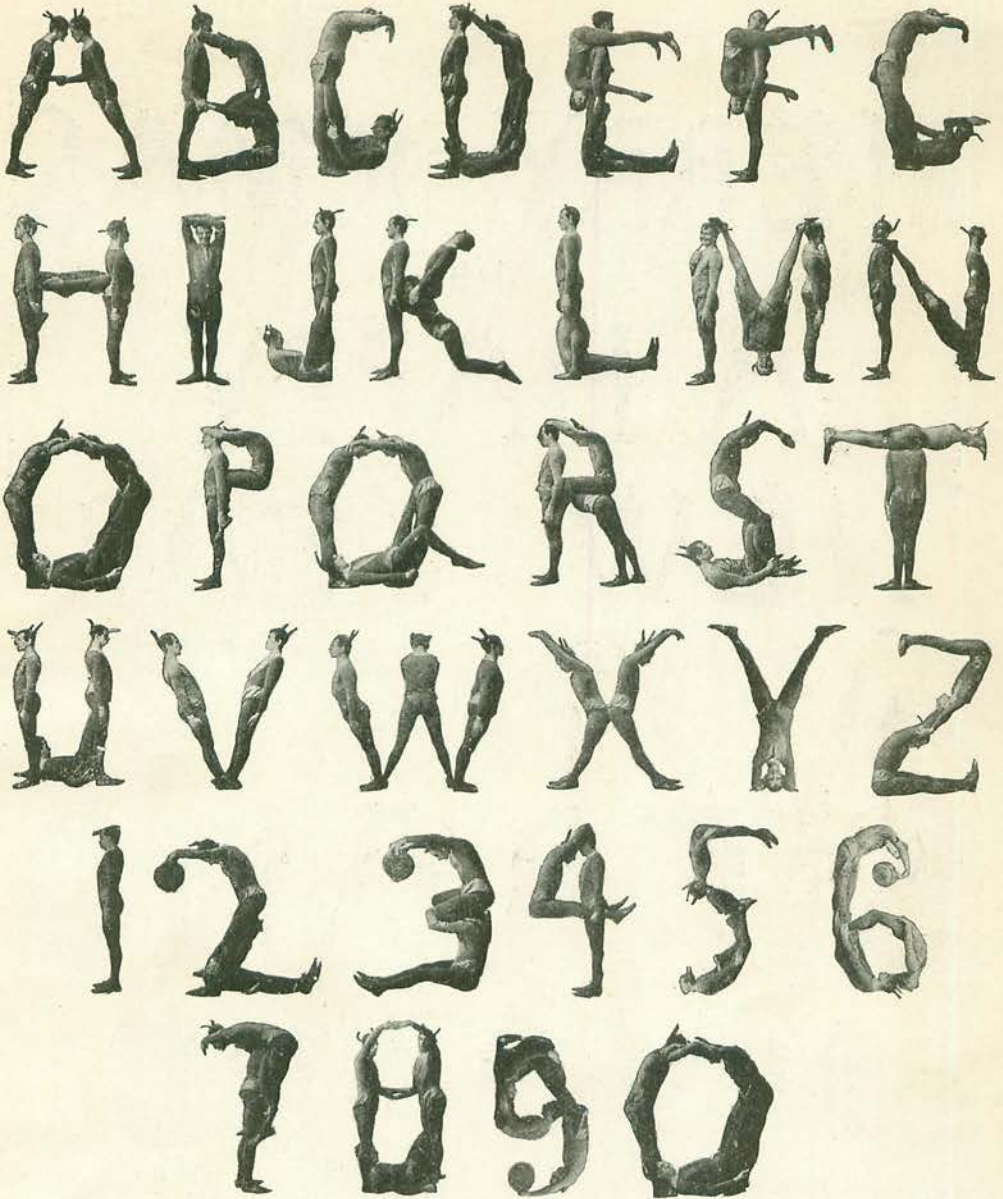 ABCDEFG
HIJKLMN
OPQRST
UVWXYZ
123456
7890